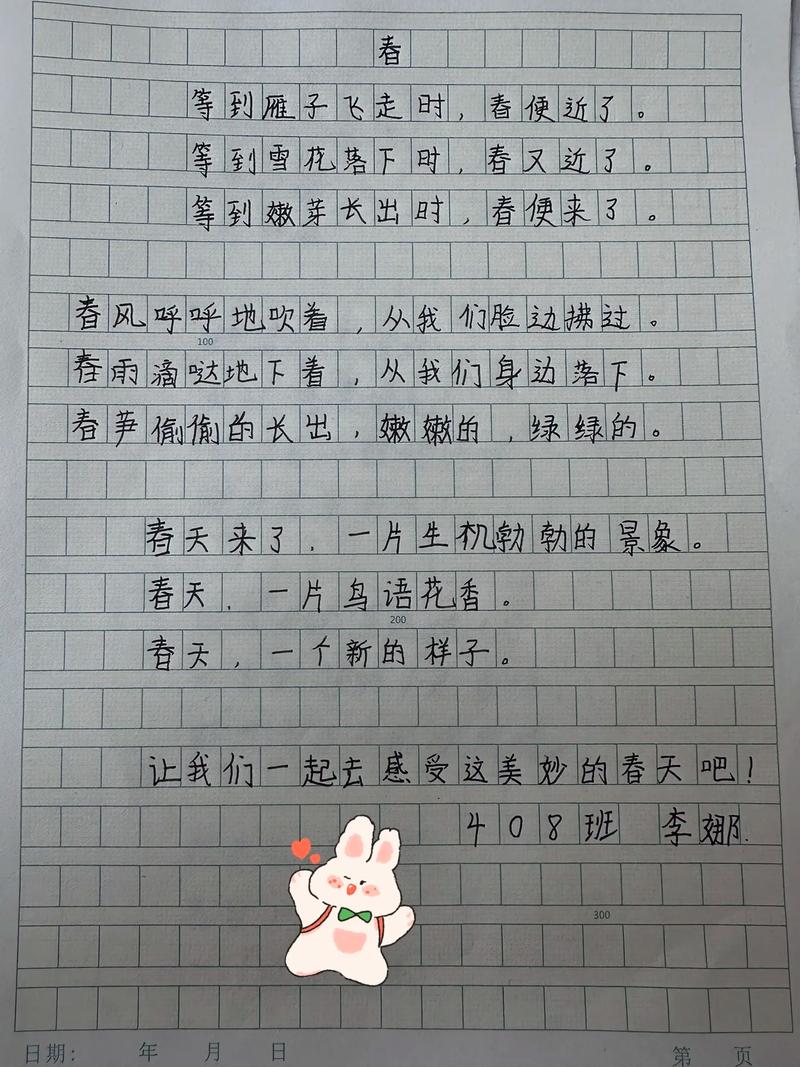 春
等到雁子飞走时，春便近了。
等到雪花落下时，春又近了。
等到嫩芽长出时，春便来了。
春风呼呼地吹着，从我们脸边拂过。
100
春雨滴哒地下着，从我们身边落下。
春笋偷偷的长出，嫩嫩的，绿绿的。
春天来了，一片生机勃勃的景象。
春天，一片鸟语花香。
200
春天，一个新的样子。
让我们一起去感受这美妙的春天吧！
408班 李娜.
300
日期： 年 月 日 第 页